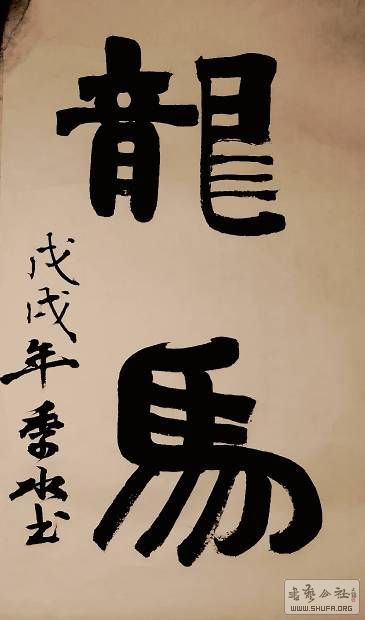 龍馬
戊戌年 水书
书艺公社
WWW.SHUFA.ORG